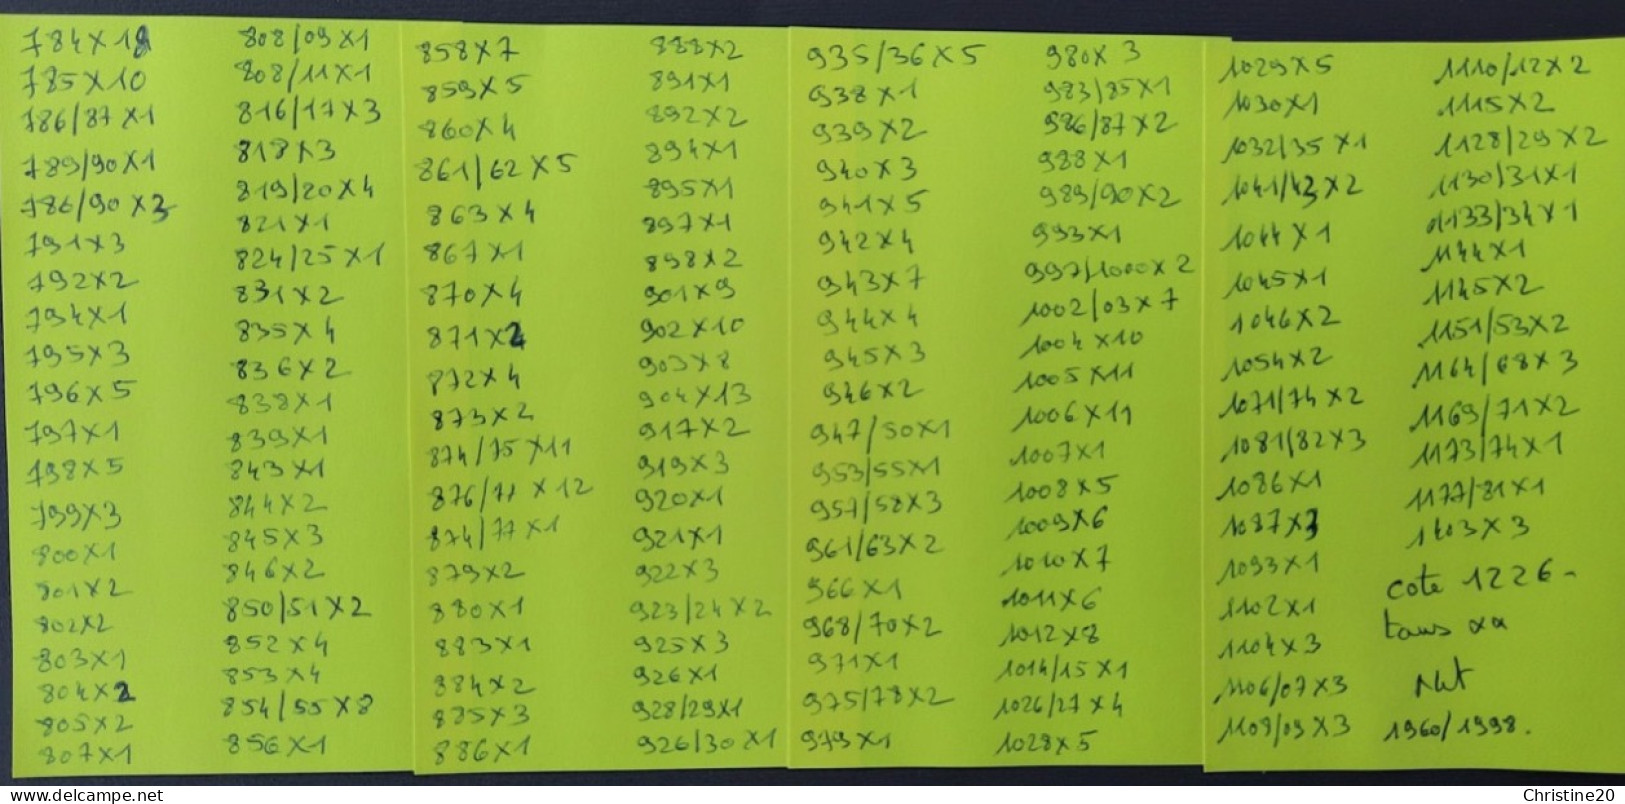 784x18
785x10
786/87x1
789/90x1
786/90x3
791x3
792x2
794x1
795x3
796x5
797x1
798x5
799x3
800x1
801x2
802x2
803x1
804x2
805x2
807x1
808/09x1
808/11x1
816/17x3
818x3
819/20x4
821x1
824/25x1
831x2
835x4
836x2
838x1
839x1
843x1
844x2
845x3
846x2
850/51x2
852x4
853x4
854/55x8
856x1
858x7
859x5
860x4
861/62x5
863x4
867x1
870x4
871x2
872x4
873x2
874/75x11
876/77x12
874/77x1
879x2
880x1
883x1
884x2
885x3
886x1
888x2
891x1
892x2
894x1
895x1
897x1
898x2
901x9
902x10
903x8
904x13
917x2
919x3
920x1
921x1
922x3
923/24x2
925x3
926x1
928/29x1
926/30x1
935/36x5
938x1
939x2
940x3
941x5
942x4
943x7
944x4
945x3
946x2
947/50x1
953/55x1
957/58x3
961/63x2
966x1
968/70x2
971x1
975/78x2
979x1
980x3
983/85x1
986/87x2
988x1
989/90x2
993x1
997/1000x2
1002/03x7
1004x10
1005x11
1006x11
1007x1
1008x5
1009x6
1010x7
1011x6
1012x8
1014/15x1
1026/27x4
1028x5
1029x5
1030x1
1032/35x1
1041/43x2
1044x1
1045x1
1046x2
1054x2
1071/74x2
1081/82x3
1086x1
1087x3
1093x1
1102x1
1104x3
1106/07x3
1108/09x3
1110/12x2
1115x2
1128/29x2
1130/31x1
1133/34x1
1144x1
1145x2
1151/53x2
1164/68x3
1169/71x2
1173/74x1
1177/81x1
1403x3
cote 1226-
tous xx
1960/1998.
www.delcampe.net
Christine20